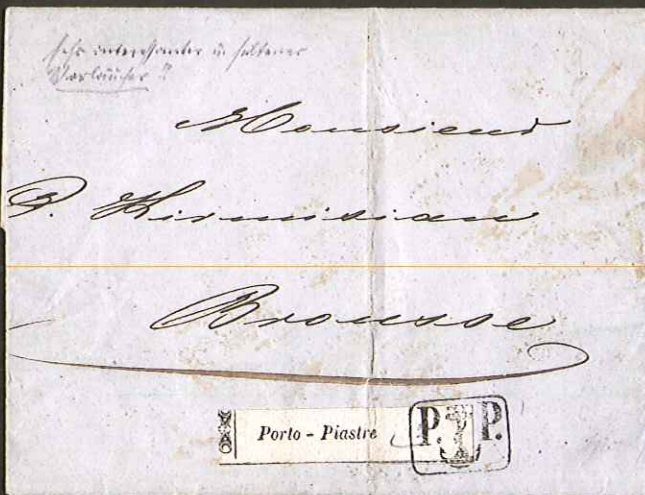 Sehr interessanter u seltener
Vorläufer !!
Monsieur
P. Kirmissian
Brousse
Porto - Piastre
P. P.